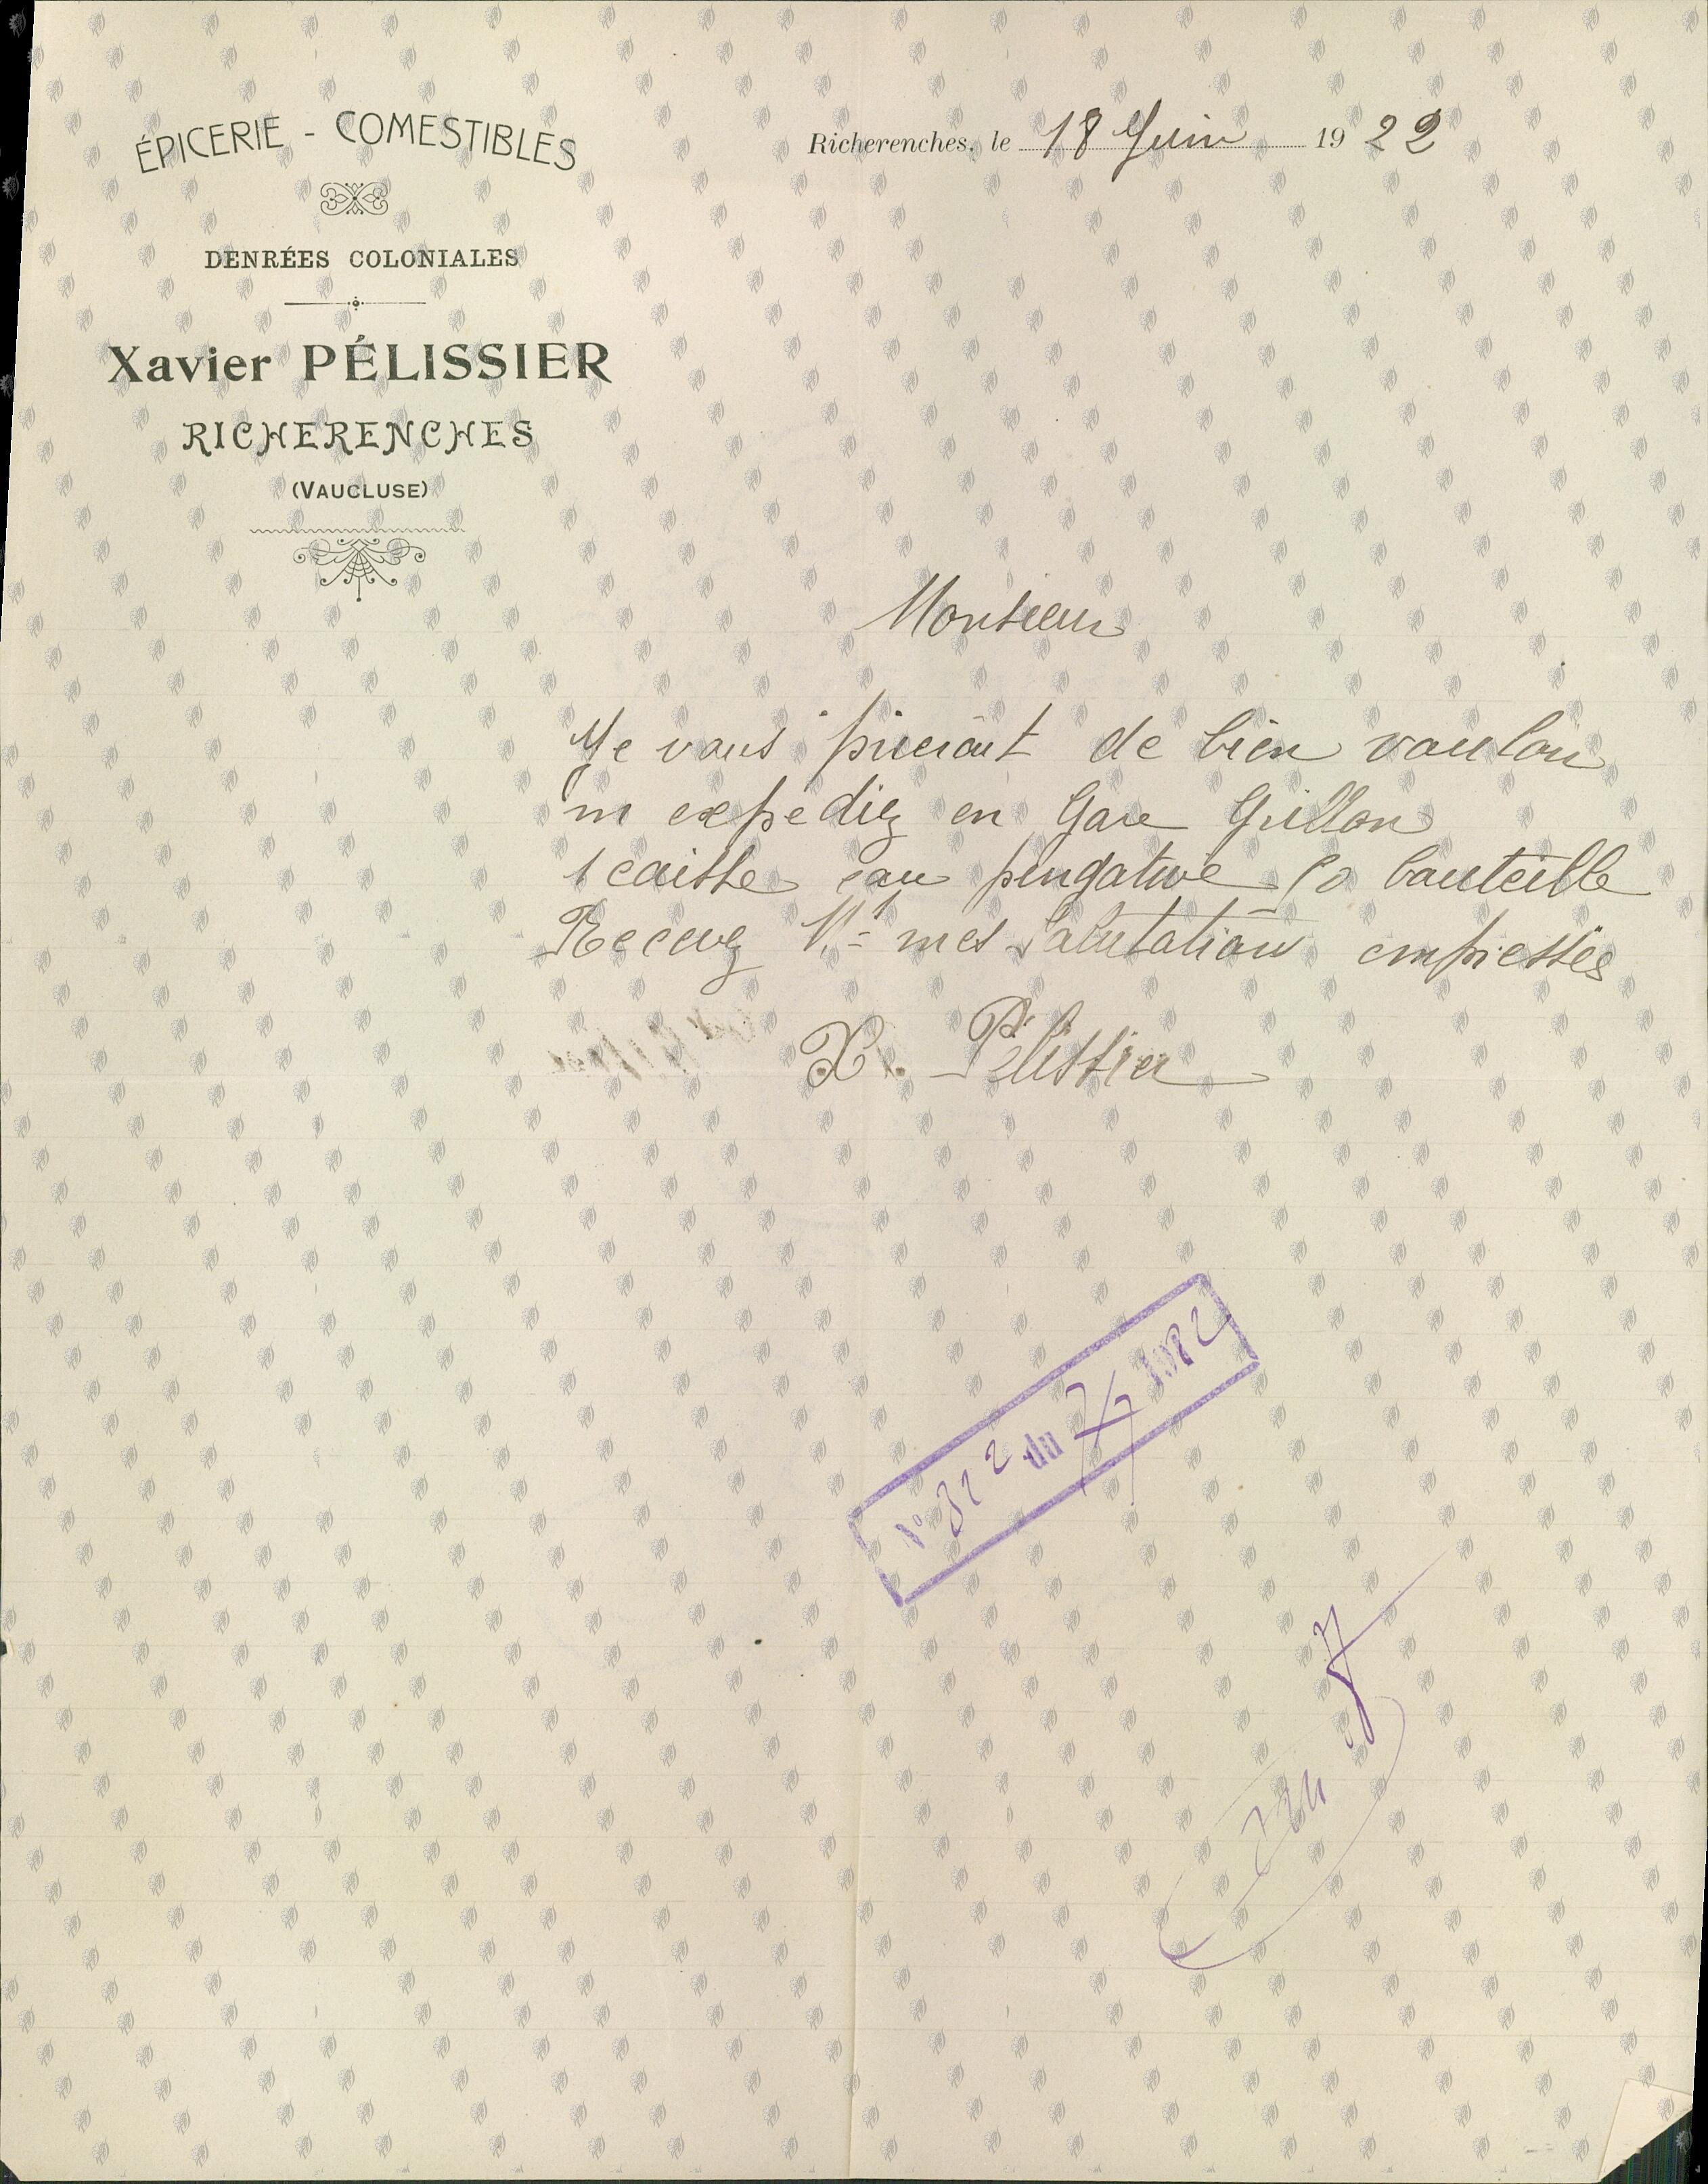 ÉPICERIE - COMESTIBLES
DENRÉES COLONIALES
Xavier PÉLISSIER
RICHERENCHES
(VAUCLUSE)
Richerenches, le 18 Juin 1922
Monsieur
Je vous prierait de bien vouloir
m expediez en Gare Grillon
1 caisse eau purgative 50 bouteille
Recevez Mr mes Salutation empressés
X. Pélissier
N° 322 du 7/7 1922